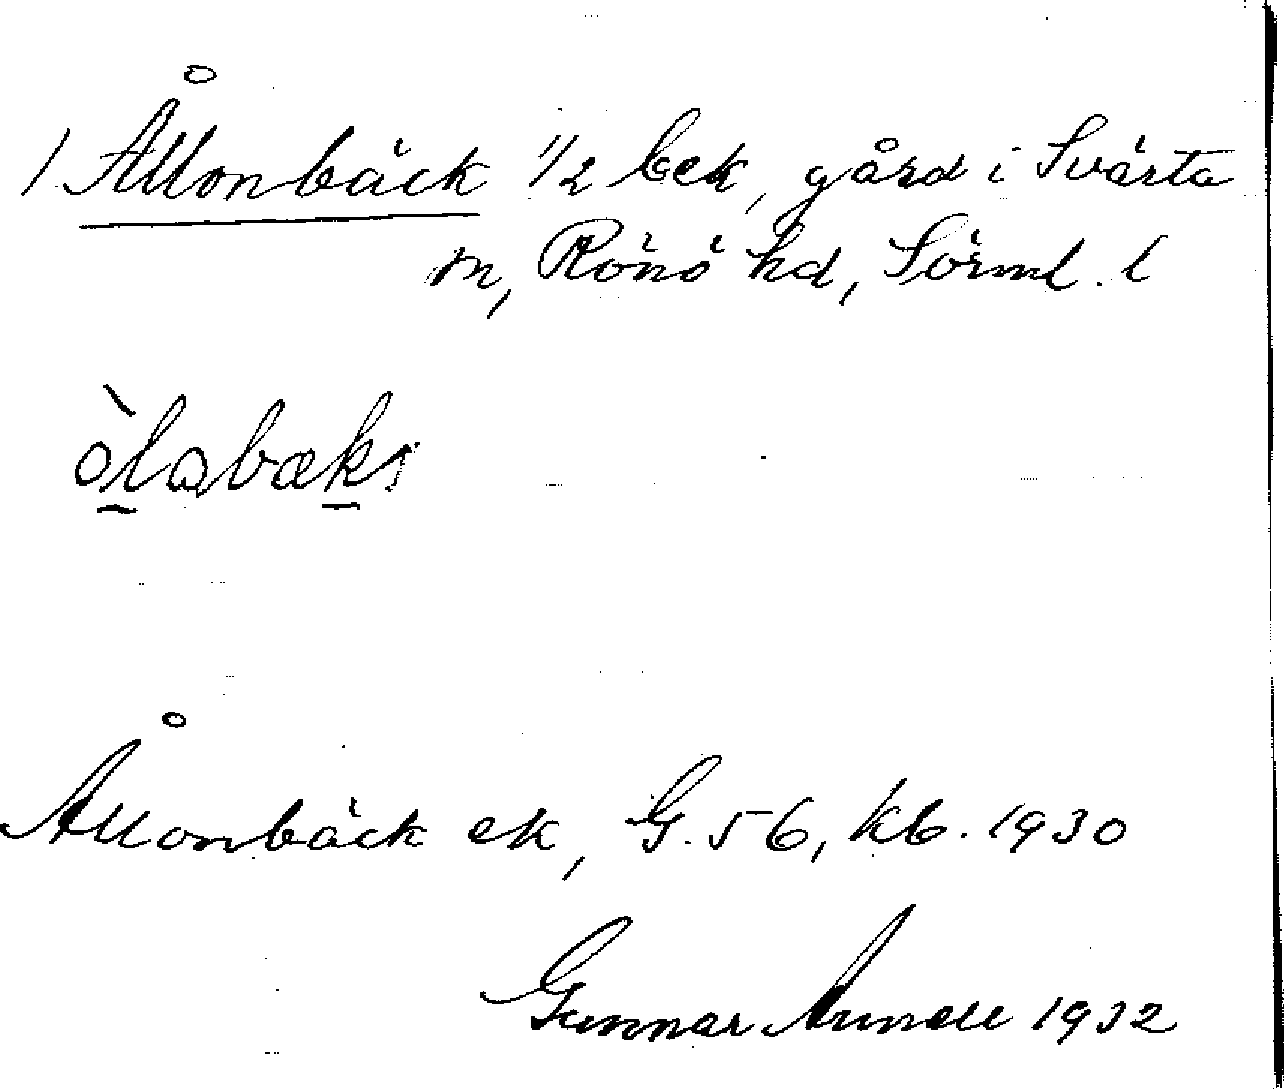 1 Ållonbäck 1/2 bek, gård i Svärta
sn, Rönö hd, Sörml. l
Ållonbäck ek, G. 56, kb. 1930
Gunnar Arnell 1932